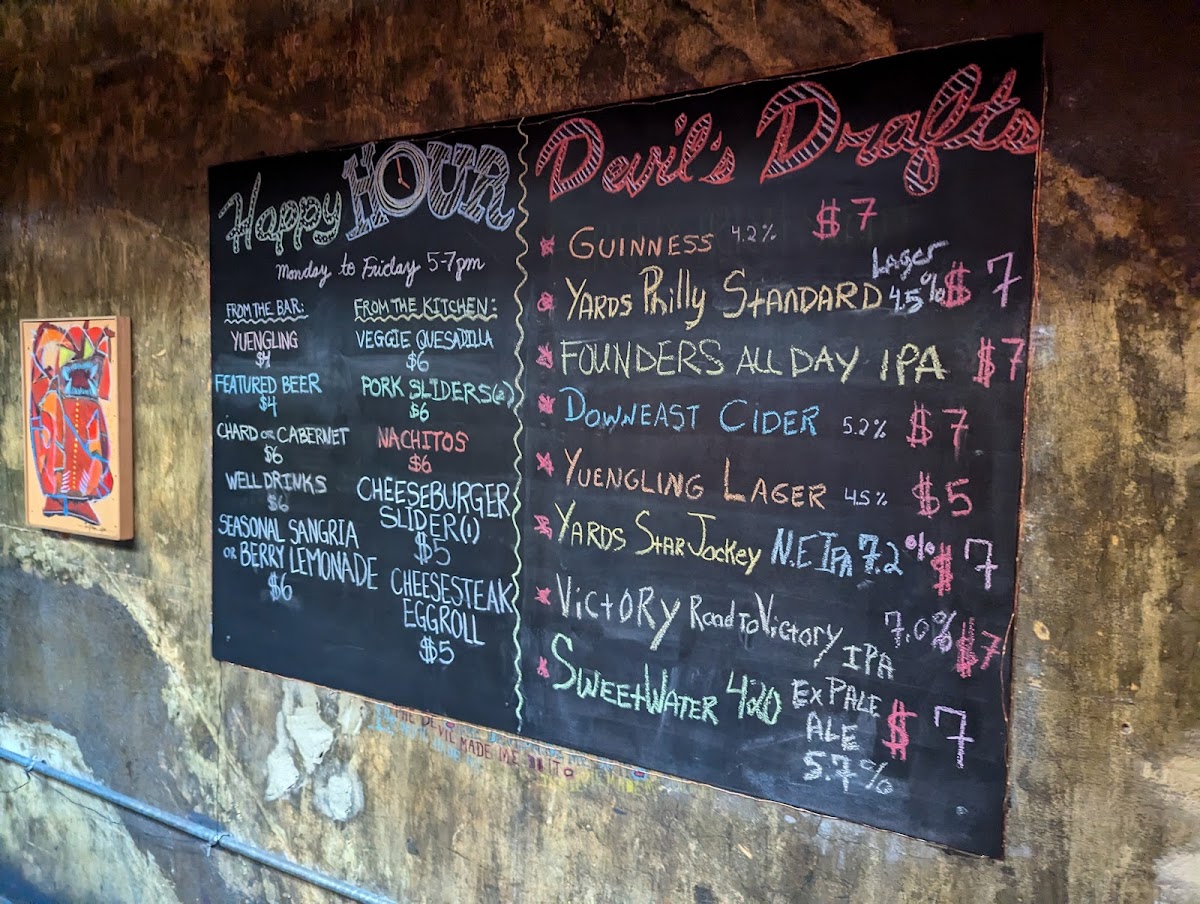 Happy HOUR
Monday to Friday 5-7pm
FROM THE BAR:
YUENGLING
$4
FEATURED BEER
$4
CHARD OR CABERNET
$6
WELL DRINKS
$6
SEASONAL SANGRIA
OR BERRY LEMONADE
$6
FROM THE KITCHEN:
VEGGIE QUESADILLA
$6
PORK SLIDERS(2)
$6
NACHITOS
$6
CHEESEBURGER
SLIDER(1)
$5
CHEESESTEAK
EGGROLL
$5
Devil's Drafts
GUINNESS 4.2% $7
YARDS Philly STANDARD Lager 4.5% $7
FOUNDERS ALL DAY IPA $7
DOWNEAST CIDER 5.2% $7
YUENGLING LAGER 4.5% $5
YARDS Star Jockey N.E IPA 7.2% $7
VICTORY Road To Victory IPA 7.0% $7
SWEETWATER 420 Ex PALE
ALE $7
5.7%
DEVIL MADE ME DO IT